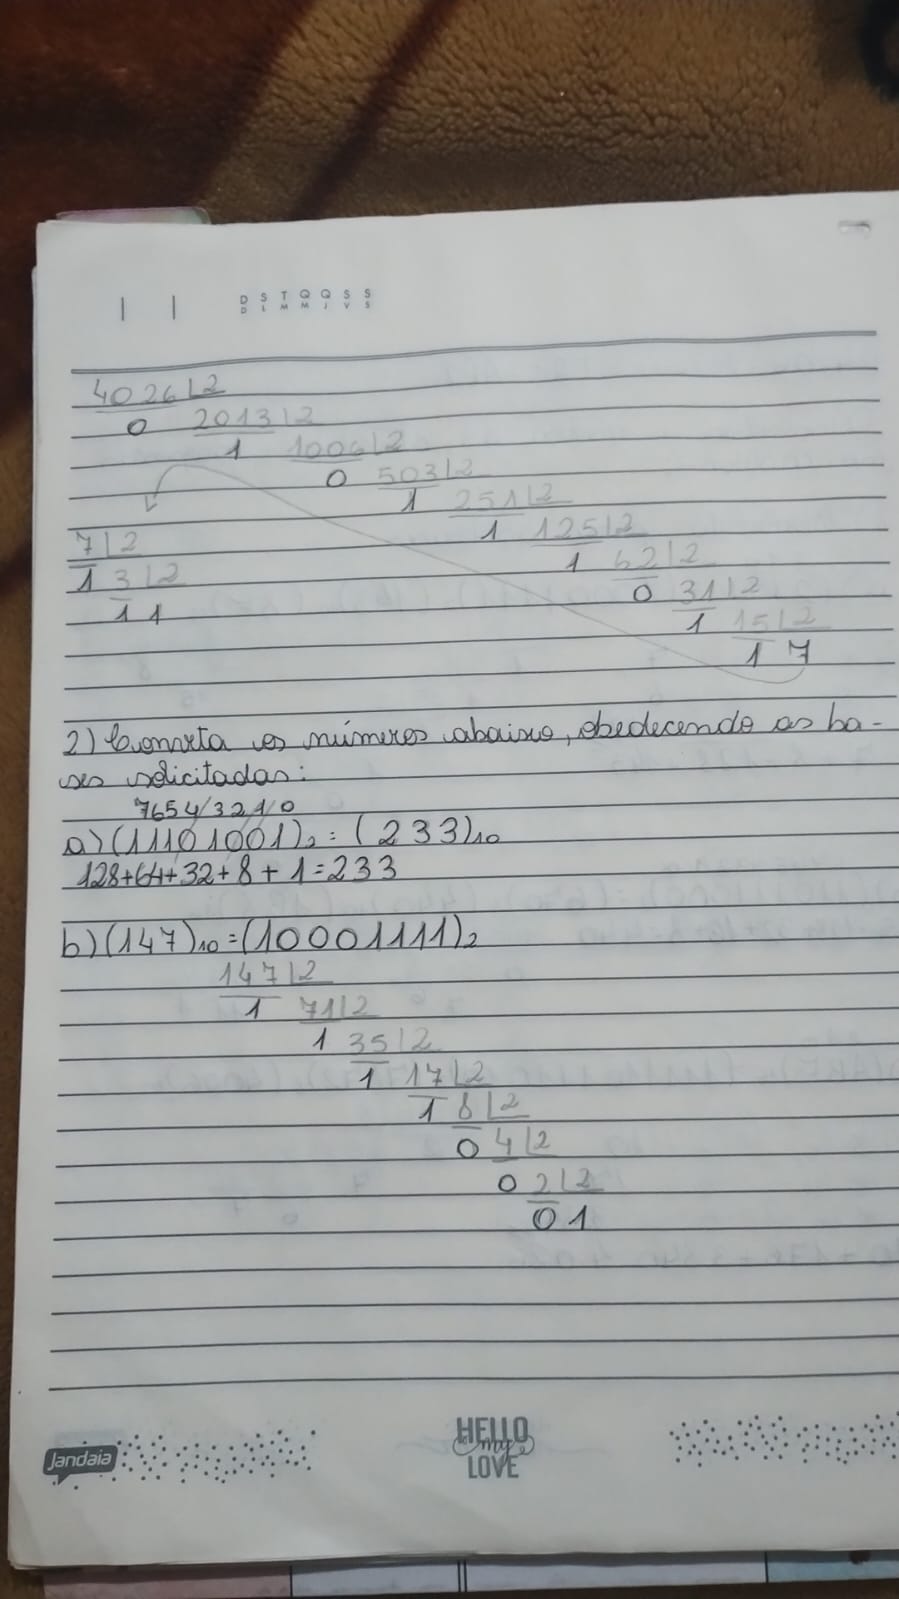 D S T Q Q S S
D L M M J V S
4026 2
0 2013 2
1 1006 2
0 503 2
1 251 2
1 125 2
1 62 2
0 31 2
1 15 2
1 7
7 2
1 3 2
1 1
2) Converta os números abaixo, obedecendo as ba-
ses solicitadas:
7654/3210
a) (11101001)₂ = (233)₁₀
128+64+32+8+1=233
b) (147)₁₀ = (10001111)₂
147 2
1 71 2
1 35 2
1 17 2
1 8 2
0 4 2
0 2 2
0 1
Jandaia
HELLO
my
LOVE